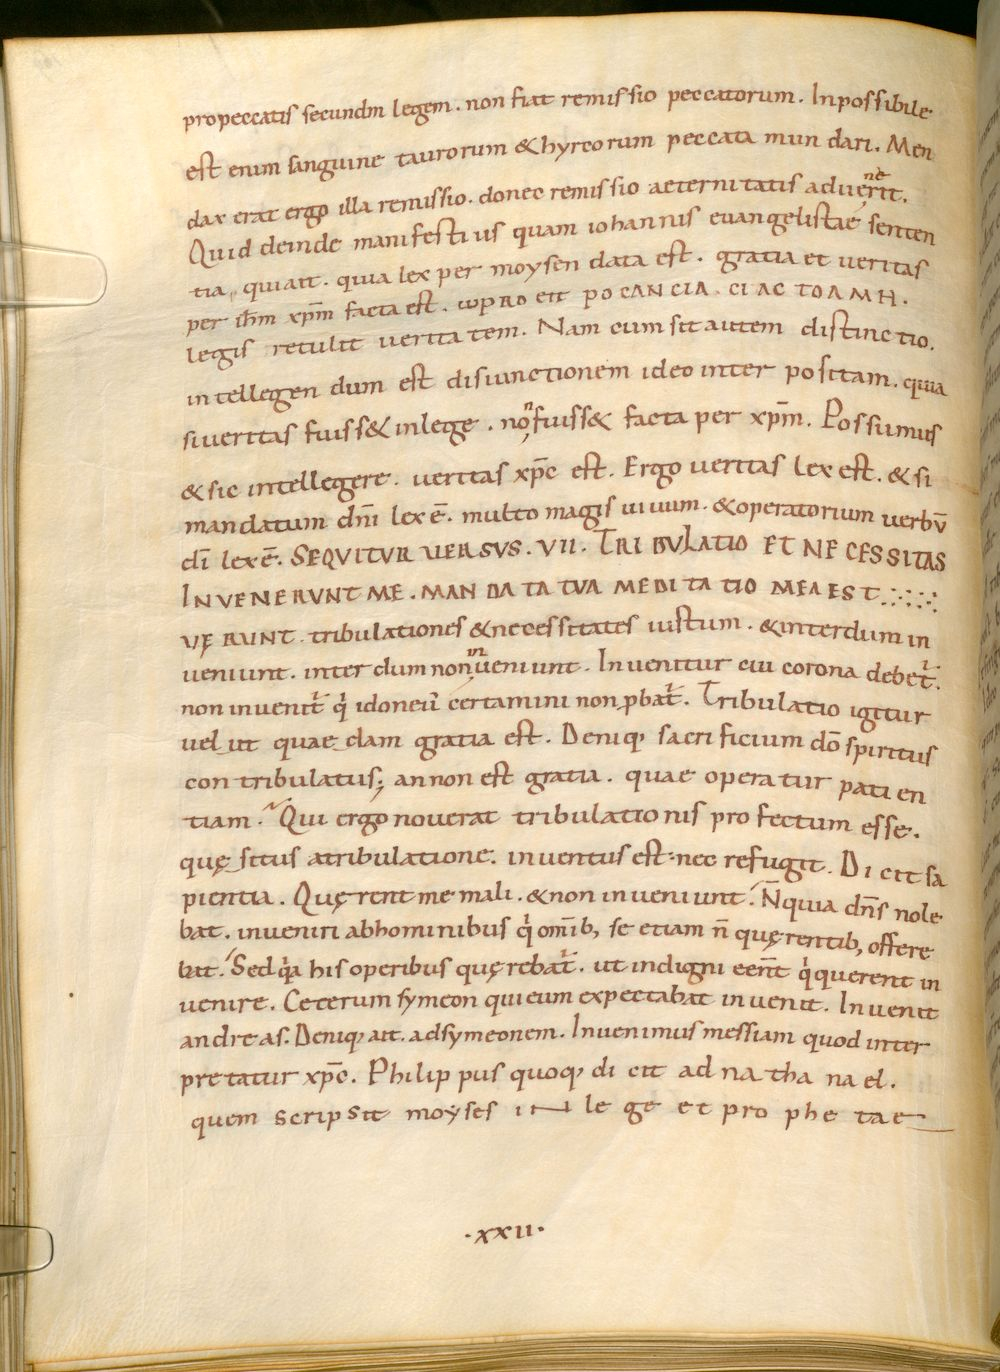 propeccatis secundm legem. non fiat remissio peccatorum. Inpossibile
est enim sanguine taurorum & hyrcorum peccata mundari. Men
dax erat ergo illa remissio. donec remissio aeternitatis aduenerit.
Quid deinde manifestius quam iohannis euangelistae senten
tia, qui ait. quia lex per moysen data est. gratia et ueritas
per ih̅m xp̅m facta est. ωPRO EIT PO CANCIA. CI AC TOAMH.
legis retulit ueritatem. Nam cum sit autem distinctio.
intellegendum est disiunctionem ideo interpositam. quia
si ueritas fuiss& inlege. no fuiss& facta per xp̅m. Possumus
& sic intellegere. ueritas xp̅c est. Ergo ueritas lex est. & si
mandatum dn̅i lex ē. multo magis uiuum. & operatorium uerbū
dī lex ē. SEQUITUR UERSUS. VII. TRIBULATIO ET NECESSITAS
INUENERUNT ME. MANDATA TUA MEDITATIO MEA EST
UĘRUNT. tribulationes & necessitates iustum. & interdum in
ueniunt. interdum non inueniunt. Inuenitur cui corona debet̄.
non inuenit̄ q̄ idoneū certamini non ꝓbat̄. Tribulatio igitur
uelut quaedam gratia est. Deniq; sacrificium dō spiritus
contribulatus; an non est gratia. quae operatur patien
tiam. Qui ergo nouerat tribulationis profectum esse.
quęsitus atribulatione. inuentus est. nec refugit. Dicit sa
pientia. Quęrent me mali. & non inueniunt. N̄ quia dn̅s nole
bat. inueniri abhominibus q̄ omīb, se etiam n̄ quęrentib, offere
bat. Sed q̄a his operibus quęrebat̄. ut indigni eēnt q̄ querent in
uenire. Ceterum symeon qui eum expectabat inuenit. Inuenit
andreas. Deniq; ait. adsymeonem. Inuenimus messiam quod inter
pretatur xp̅c. Philippus quoq; dicit ad nathanael.
quem scripsit moyses IN lege et prophetae
·xxii·